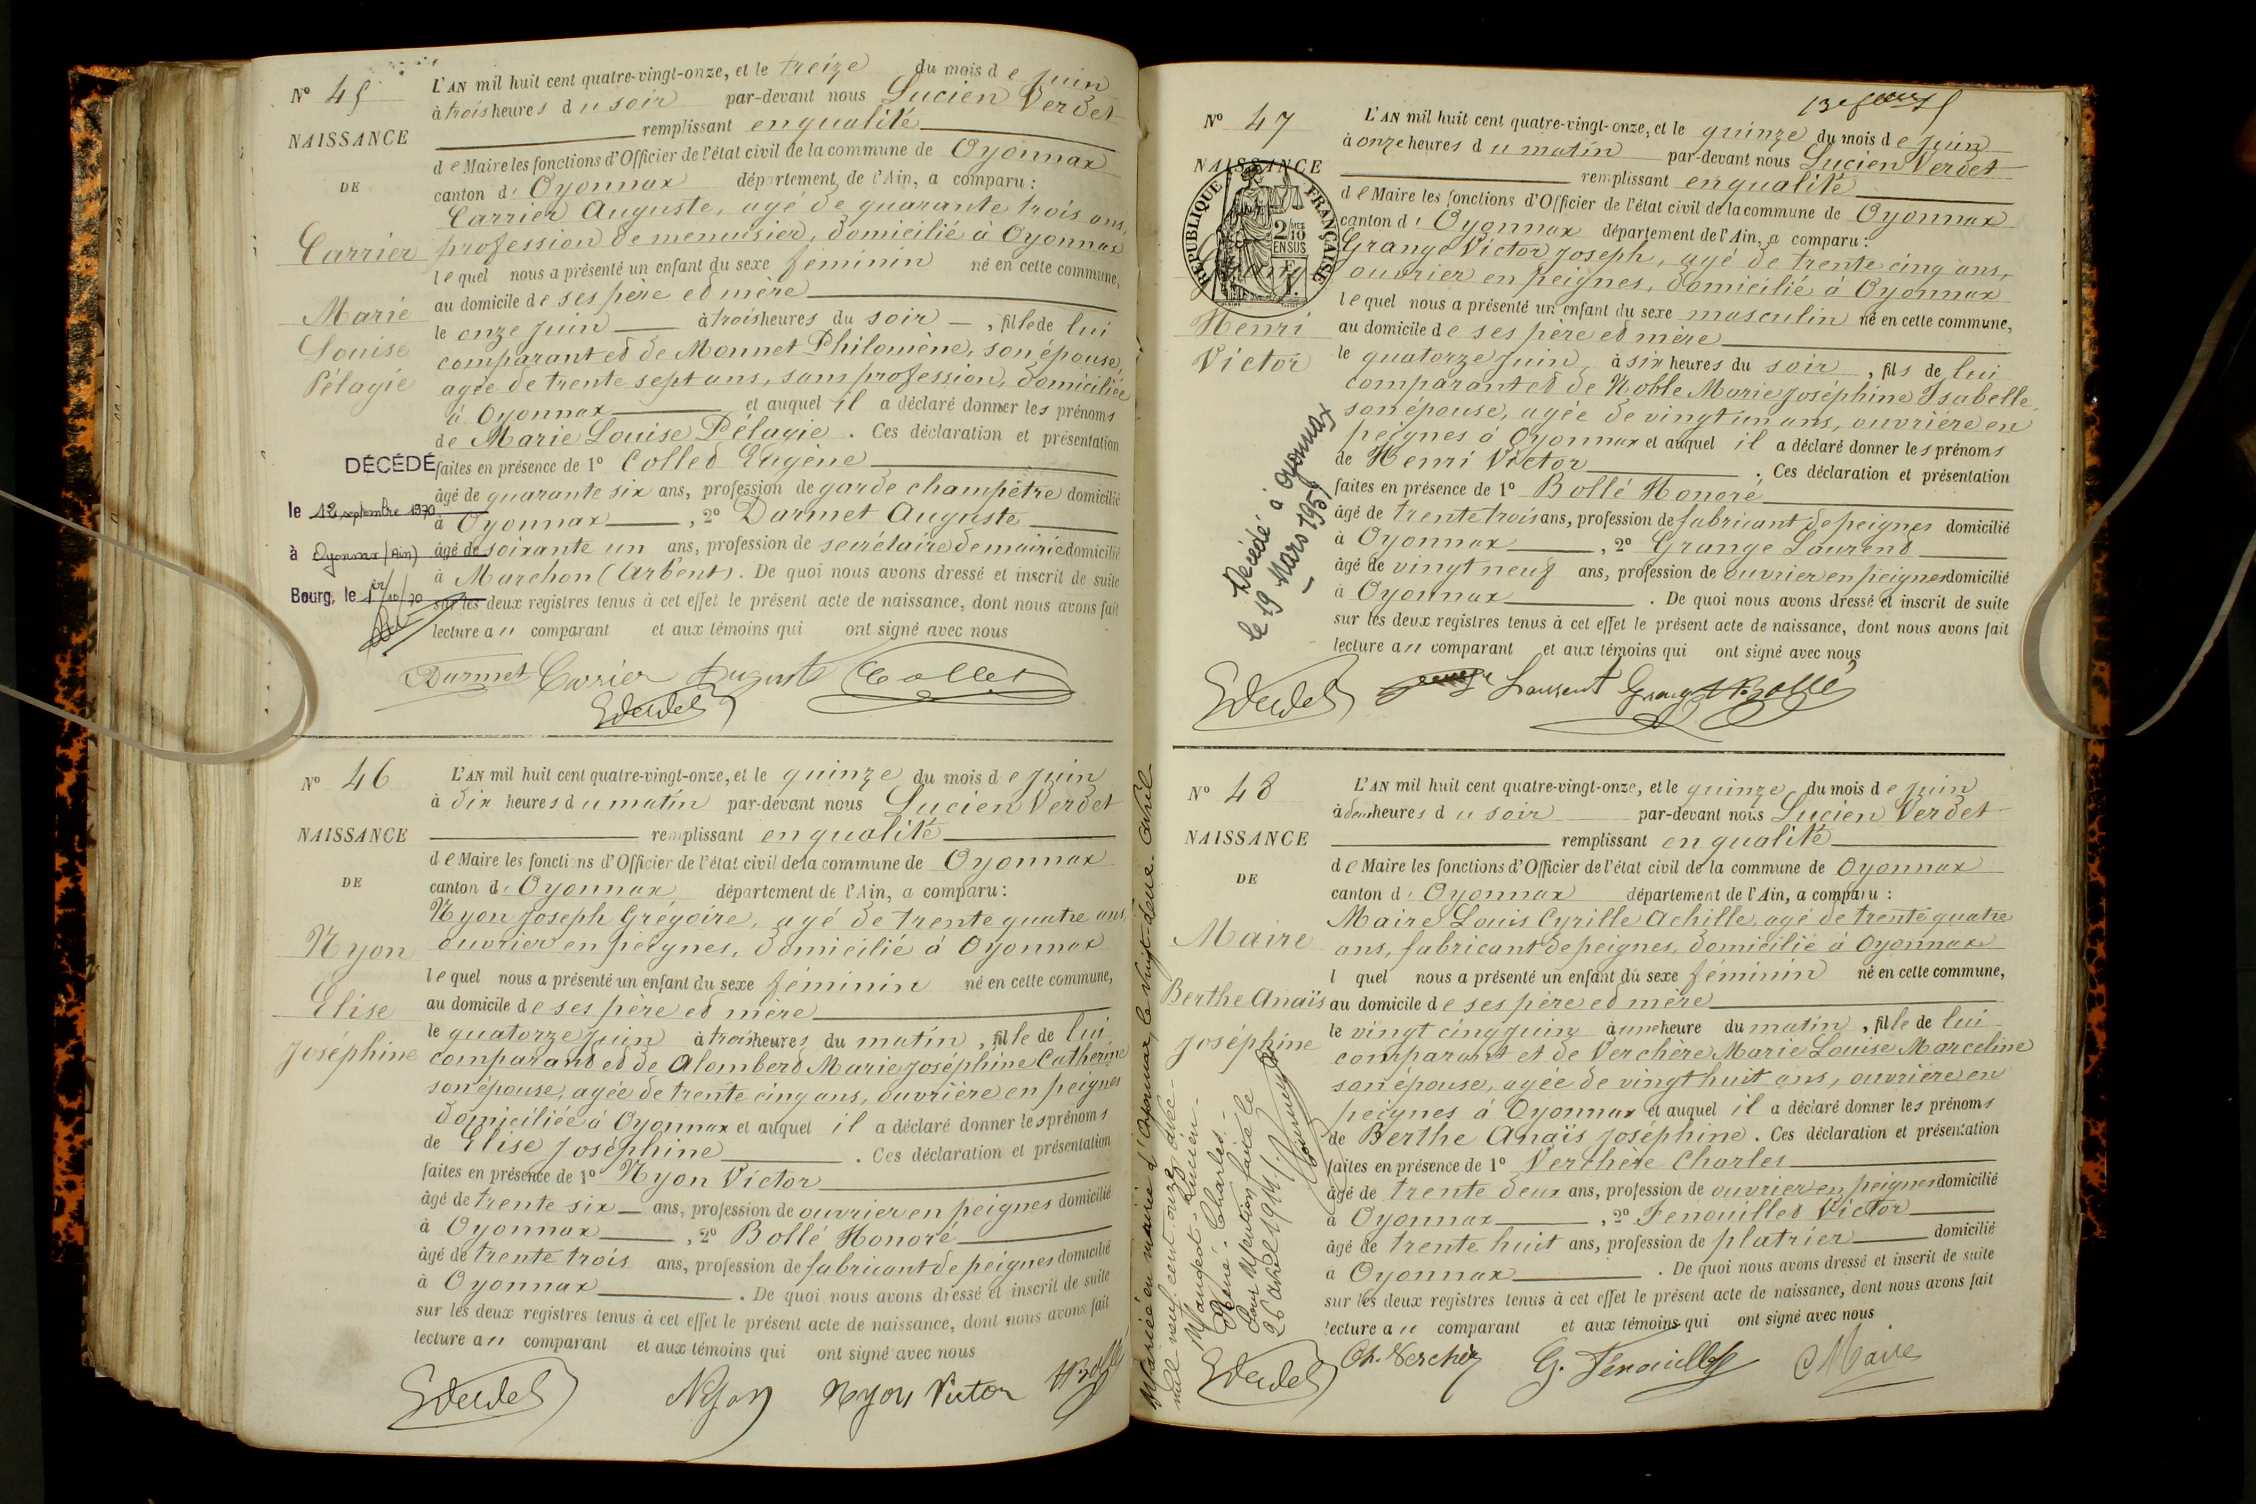 N° 45
NAISSANCE
DE
Carrier
Marie
Louise
Pélagie
DÉCÉDÉ
le 12 septembre 1970
à Oyonnax (Ain)
Bourg, le 1er/10/70
L'AN mil huit cent quatre-vingt-onze, et le treize du mois de juin
à trois heures du soir par-devant nous Lucien Verdet
remplissant en qualité
de Maire les fonctions d'Officier de l'état civil de la commune de Oyonnax
canton d' Oyonnax département de l'Ain, a comparu :
Carrier Auguste, agé de quarante trois ans,
profession de menuisier, domicilié à Oyonnax
lequel nous a présenté un enfant du sexe féminin né en cette commune,
au domicile de ses père et mère
le onze juin à trois heures du soir , fille de lui
comparant et de Monnet Philomène, son épouse,
agée de trente sept ans, sans profession, domiciliée
à Oyonnax et auquel il a déclaré donner les prénoms
de Marie Louise Pélagie . Ces déclaration et présentation
faites en présence de 1° Collet Eugène
âgé de quarante six ans, profession de garde champêtre domicilié
à Oyonnax , 2° Darmet Auguste
âgé de soixante un ans, profession de secrétaire de mairie domicilié
à Marchon (Arbent). De quoi nous avons dressé et inscrit de suite
sur les deux registres tenus à cet effet le présent acte de naissance, dont nous avons fait
lecture au comparant et aux témoins qui ont signé avec nous
Darmet Carrier Auguste Collet
Verdet
N° 46
NAISSANCE
DE
Nyon
Elise
Joséphine
L'AN mil huit cent quatre-vingt-onze, et le quinze du mois de juin
à dix heures du matin par-devant nous Lucien Verdet
remplissant en qualité
de Maire les fonctions d'Officier de l'état civil de la commune de Oyonnax
canton d' Oyonnax département de l'Ain, a comparu :
Nyon Joseph Grégoire, agé de trente quatre ans,
ouvrier en peignes, domicilié à Oyonnax
lequel nous a présenté un enfant du sexe féminin né en cette commune,
au domicile de ses père et mère
le quatorze juin à trois heures du matin , fille de lui
comparant et de Alombert Marie Joséphine Catherine
son épouse, agée de trente cinq ans, ouvrière en peignes
domiciliée à Oyonnax et auquel il a déclaré donner les prénoms
de Elise Joséphine . Ces déclaration et présentation
faites en présence de 1° Nyon Victor
âgé de trente six ans, profession de ouvrier en peignes domicilié
à Oyonnax , 2° Bollé Honoré
âgé de trente trois ans, profession de fabricant de peignes domicilié
à Oyonnax . De quoi nous avons dressé et inscrit de suite
sur les deux registres tenus à cet effet le présent acte de naissance, dont nous avons fait
lecture au comparant et aux témoins qui ont signé avec nous
Verdet Nyon Nyon Victor H Bollé
N° 47
NAISSANCE
RÉPUBLIQUE FRANÇAISE
2/10 EN SUS
Grange
Henri
Victor
Décédé à Oyonnax
le 19 Mars 1959
L'AN mil huit cent quatre-vingt-onze, et le quinze du mois de juin
à onze heures du matin par-devant nous Lucien Verdet
remplissant en qualité
de Maire les fonctions d'Officier de l'état civil de la commune de Oyonnax
canton d' Oyonnax département de l'Ain, a comparu :
Grange Victor Joseph, agé de trente cinq ans,
ouvrier en peignes, domicilié à Oyonnax
lequel nous a présenté un enfant du sexe masculin né en cette commune,
au domicile de ses père et mère
le quatorze juin à six heures du soir , fils de lui
comparant et de Noble Marie Joséphine Isabelle,
son épouse, agée de vingt un ans, ouvrière en
peignes à Oyonnax et auquel il a déclaré donner les prénoms
de Henri Victor . Ces déclaration et présentation
faites en présence de 1° Bollé Honoré
âgé de trente trois ans, profession de fabricant de peignes domicilié
à Oyonnax , 2° Grange Laurent
âgé de vingt neuf ans, profession de ouvrier en peignes domicilié
à Oyonnax . De quoi nous avons dressé et inscrit de suite
sur les deux registres tenus à cet effet le présent acte de naissance, dont nous avons fait
lecture au comparant et aux témoins qui ont signé avec nous
Verdet Laurent Grange H Bollé
N° 48
NAISSANCE
DE
Maire
Berthe Anaïs
Joséphine
Mariée en mairie d'Oyonnax, le vingt-deux avril
mil neuf cent onze, avec
Mangeot Lucien
René Charles.
Pour Mention faite le
26 avril 1911.
L'AN mil huit cent quatre-vingt-onze, et le quinze du mois de juin
à deux heures du soir par-devant nous Lucien Verdet
remplissant en qualité
de Maire les fonctions d'Officier de l'état civil de la commune de Oyonnax
canton d' Oyonnax département de l'Ain, a comparu :
Maire Louis Cyrille Achille, agé de trente quatre
ans, fabricant de peignes, domicilié à Oyonnax
l quel nous a présenté un enfant du sexe féminin né en cette commune,
au domicile de ses père et mère
le vingt cinq juin à une heure du matin , fille de lui
comparant et de Verchère Marie Louise Marceline
son épouse, agée de vingt huit ans, ouvrière en
peignes à Oyonnax et auquel il a déclaré donner les prénoms
de Berthe Anaïs Joséphine . Ces déclaration et présentation
faites en présence de 1° Verchère Charles
âgé de trente deux ans, profession de ouvrier en peignes domicilié
à Oyonnax , 2° Fenouillet Victor
âgé de trente huit ans, profession de platrier domicilié
à Oyonnax . De quoi nous avons dressé et inscrit de suite
sur les deux registres tenus à cet effet le présent acte de naissance, dont nous avons fait
lecture au comparant et aux témoins qui ont signé avec nous
Verdet Ch. Verchère G. Fenouillet C Maire